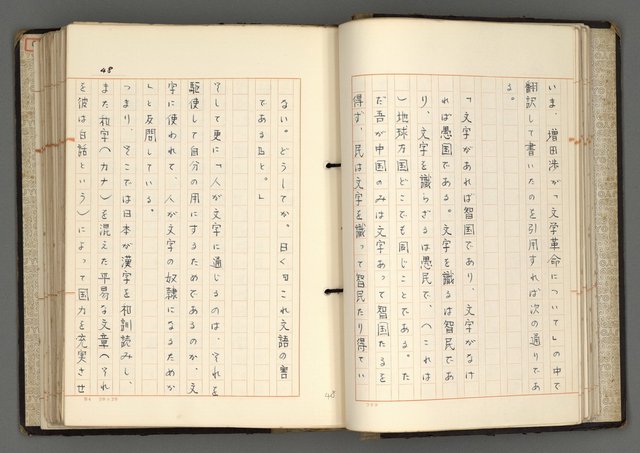 いま、増田渉が「文学革命について」の中で
翻訳して書いたのを引用すれば次の通りであ
る。
「文字があれば智国であり、文字がなけ
れば愚国である。文字を識るは智民であ
り、文字を識らざるは愚民で、へこれは
)地球万国どこでも同じことである。た
だ吾が中国のみは文字あって智国たるを
得ず、民は文字を識って智民たり得てい
48
ない。どうしてか。曰く〃これ文語の害
である〃と。」
そして更に「人が文字に通じるのは、それを
駆使して自分の用にするためであるのか、文
字に使われて、人が文字の奴隷になるためか
」と反問している。
つまり、そこでは日本が漢字を和訓読みし、
また和字(カナ)を混えた平易な文章へそれ
を彼は白話という)によって国力を充実させ
48
20×20